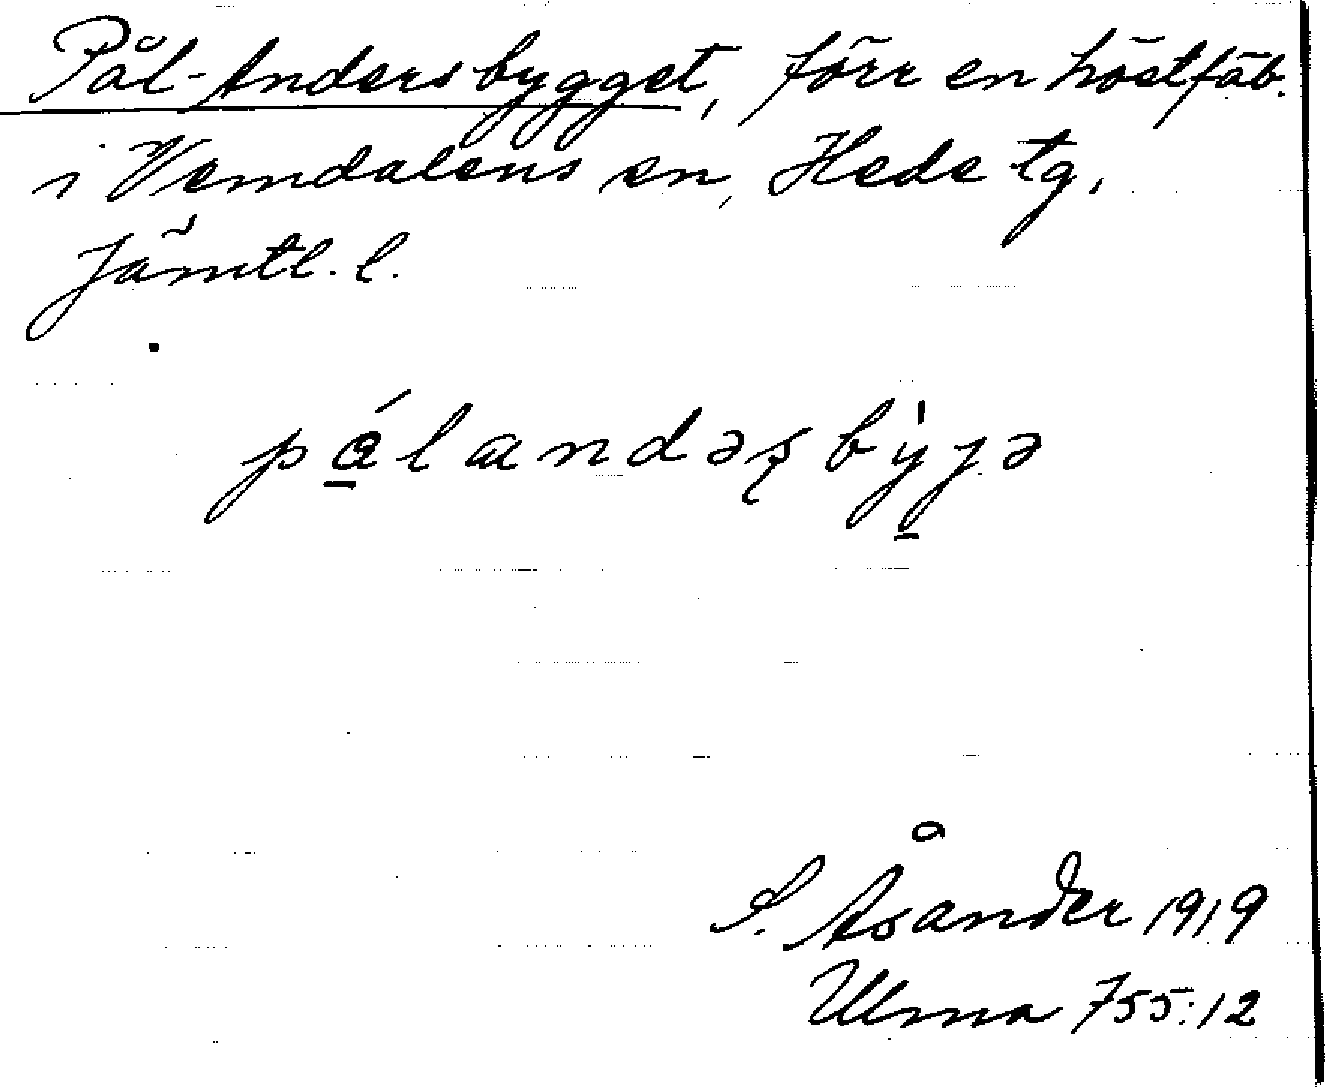 Pål-Andersbygget, förr en höstfäb.
i Vemdalens sn, Hede tg,
Jämtl. l.
pålandəʂby̍ɟə
S. Åsander 1919
Ulma 755:12